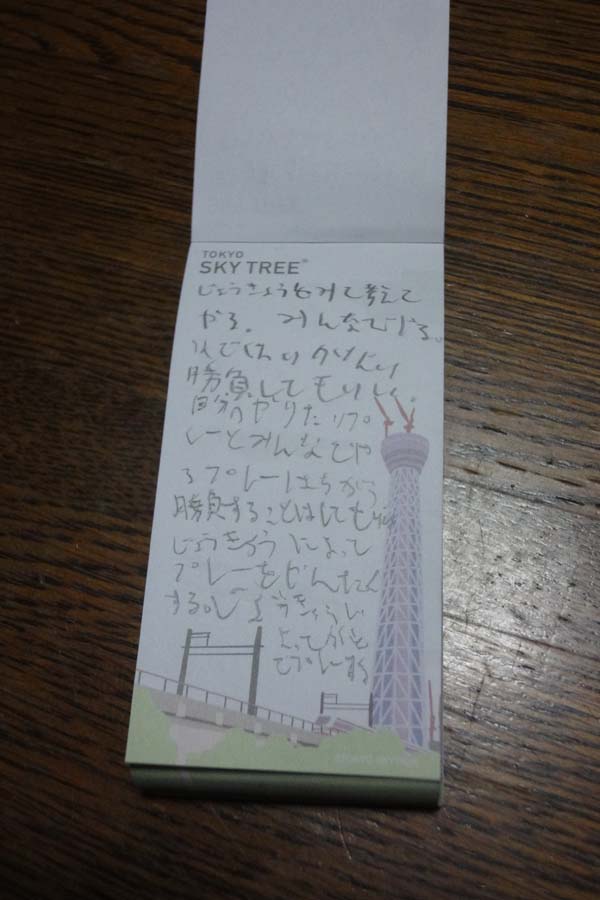 TOKYO
SKY TREE®
じょうきょうを見て考えて
やる。みんなでやる。
勝負してもいい。
自分のやりたいプ
レーとみんなでや
るプレーはちがう
勝負することはしても
じょうきょうによって
プレーをせんたく
する。じょうきょうに
よって
でプレーする